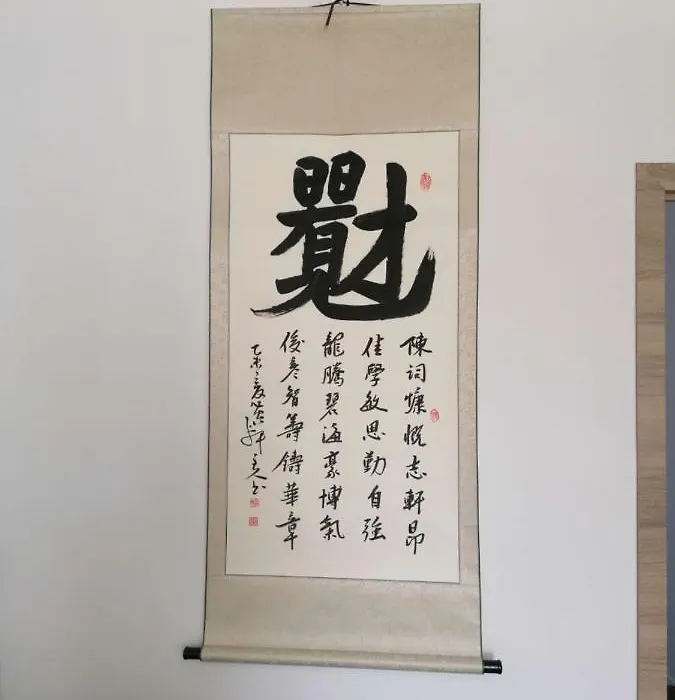 陳詞慷慨志軒昂
佳學敏思勤自強
龍騰碧海豪博氣
俊彥智籌鑄華章
乙未之夏